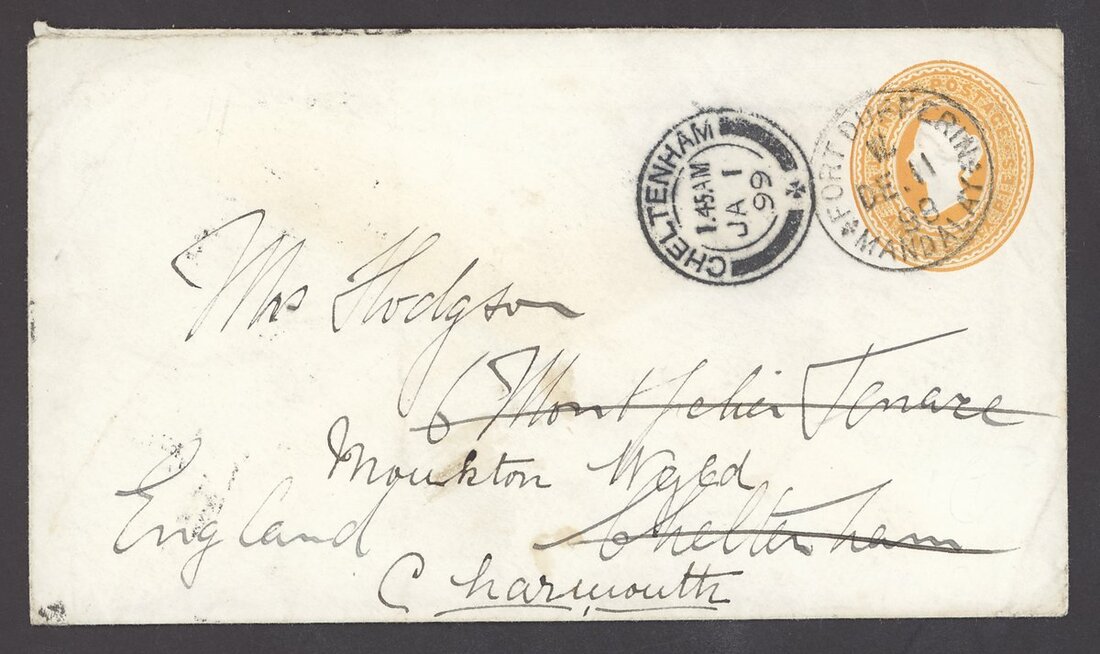 FORT DUFFERIN
DE 11
98
MANDALAY
CHELTENHAM
1.45AM
JA 1
99
Mrs Hodgson
6 Montpelier Terrace
Monkton Wyld
Cheltenham
England
Charmouth